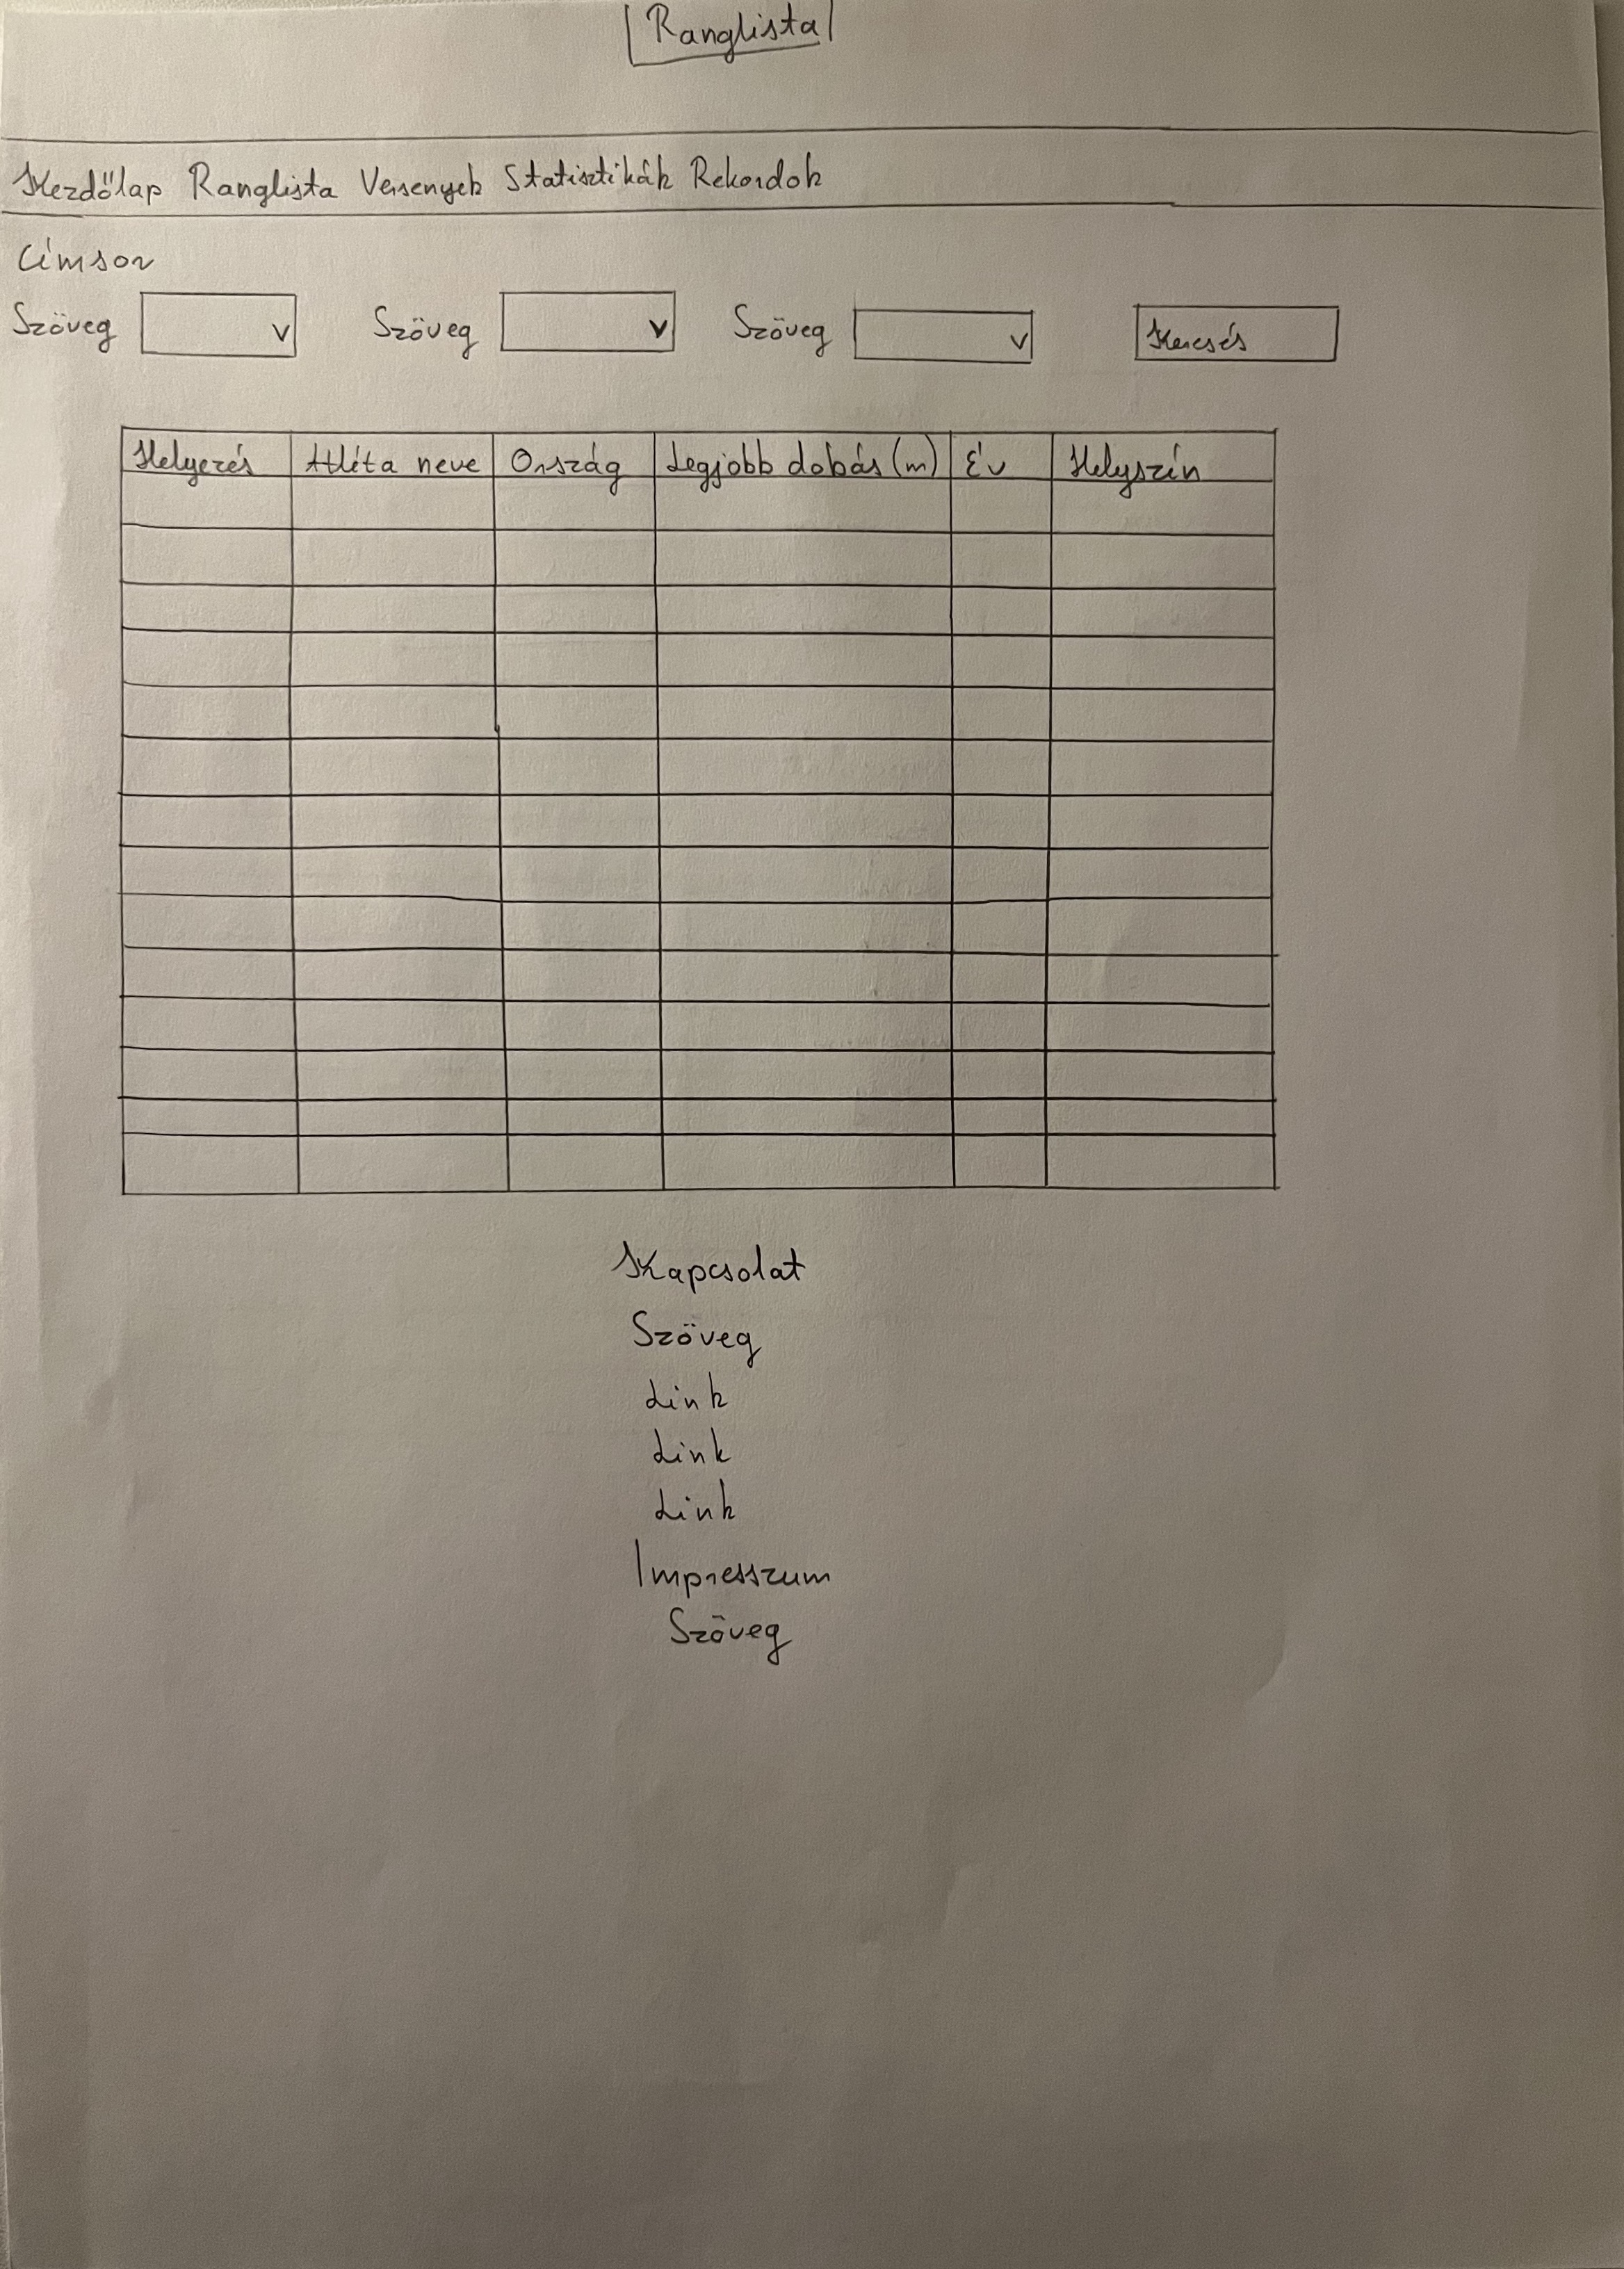 Ranglista
Kezdőlap Ranglista Versenyek Statisztikák Rekordok
Címsor
Szöveg v Szöveg v Szöveg v Keresés
Helyezés Atléta neve Ország Legjobb dobás (m) Év Helyszín
Kapcsolat
Szöveg
Link
Link
Link
Impresszum
Szöveg